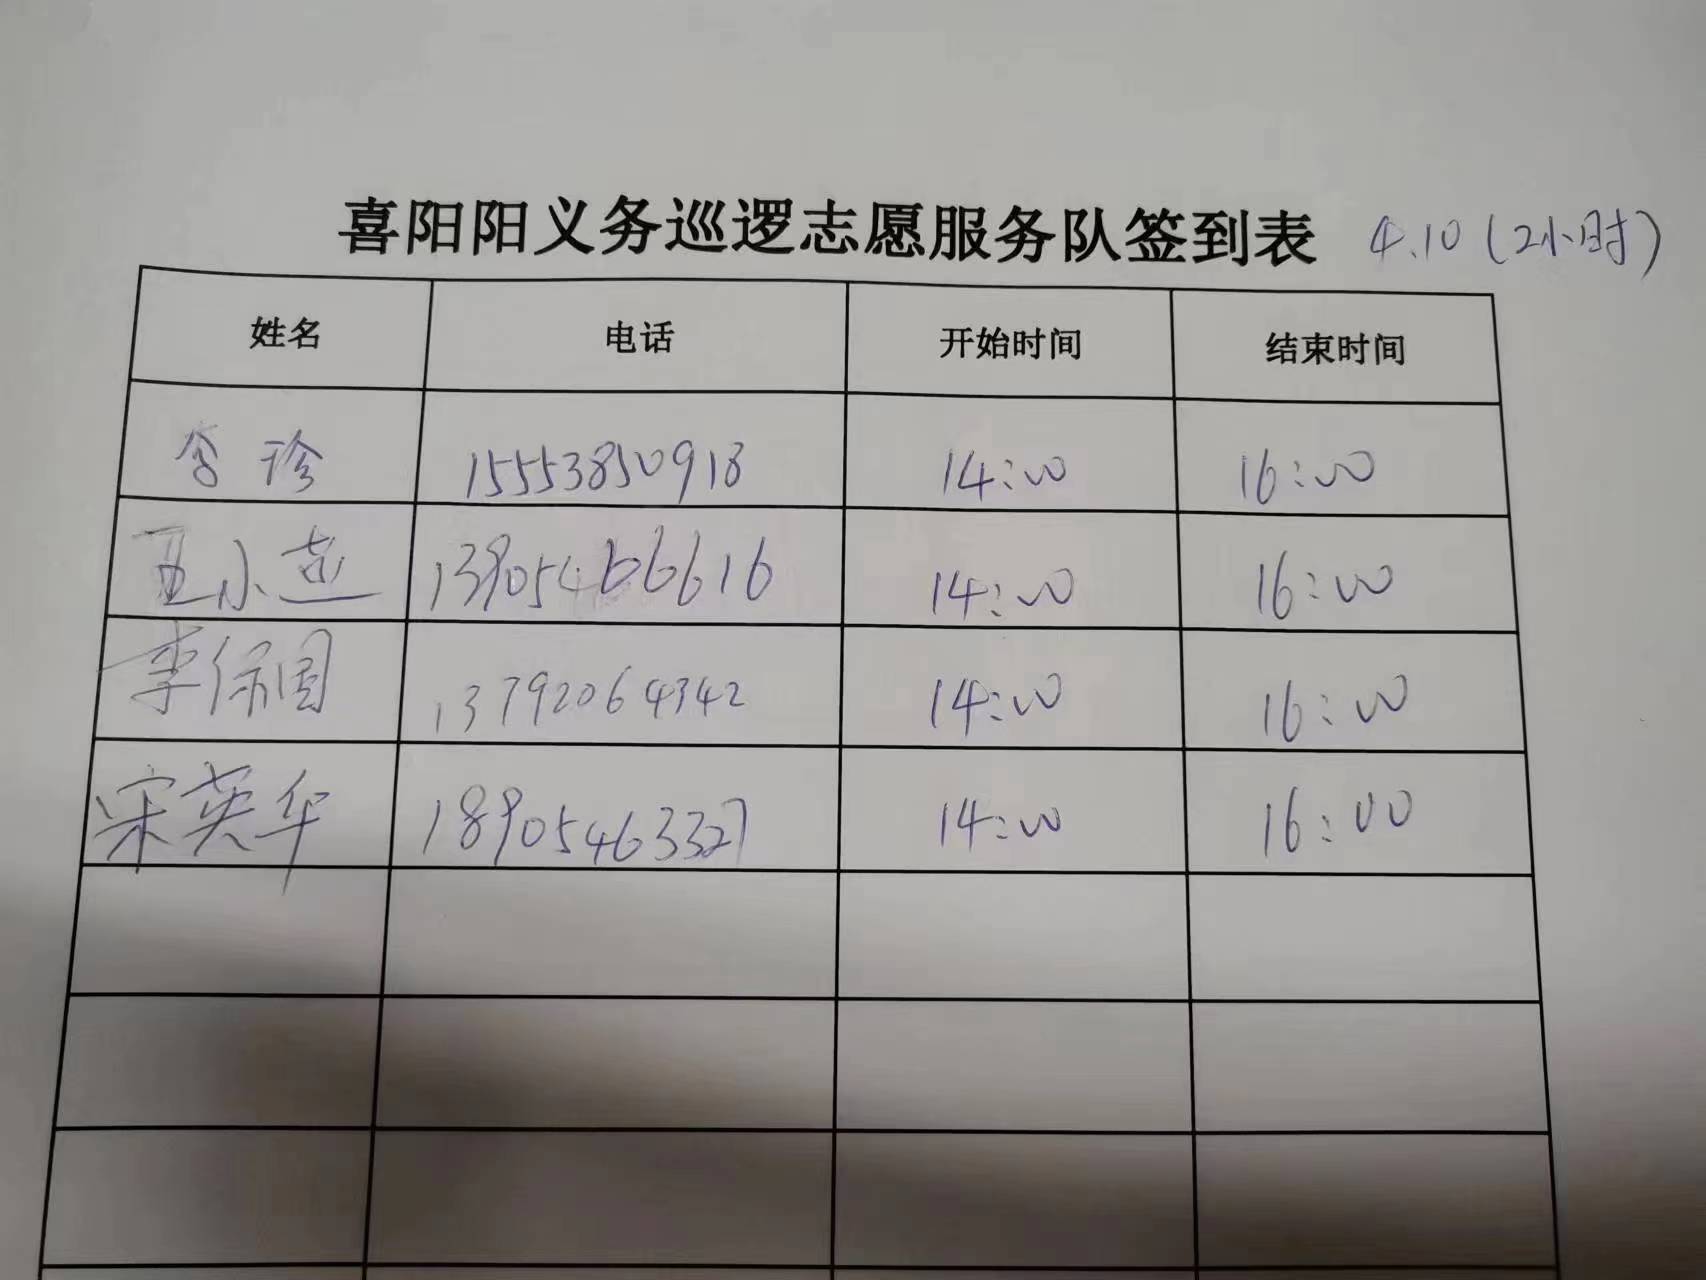 喜阳阳义务巡逻志愿服务队签到表 4.10(2小时)
姓名 电话 开始时间 结束时间
珍 15553850918 14:00 16:00
王小 13905466616 14:00 16:00
李保国 13792064342 14:00 16:00
宋英华 18905463327 14:00 16:00